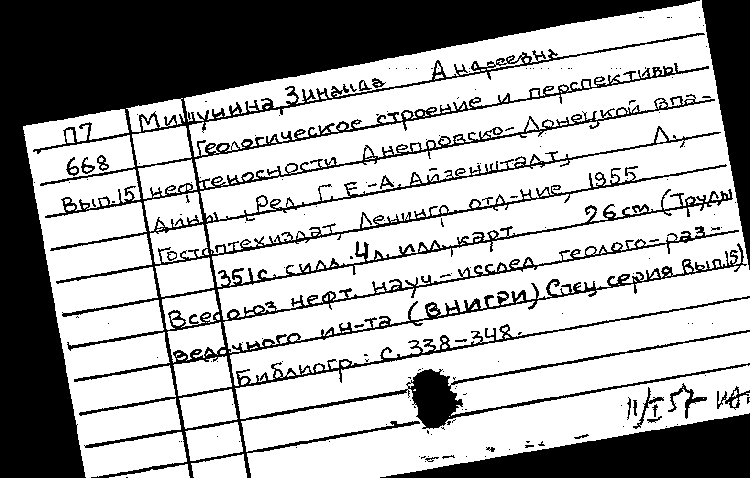 Мишунина, Зинаида Андреевна
П7 Геологическое строение и перспективы
668 нефтеносности Днепровско-Донецкой впа-
Вып.15 дины. Ред. Г. Е.-А. Айзенштадт, Л.,
Гостоптехиздат, Ленингр. отд-ние, 1955
351 с. с илл., 4 л. илл., карт. 26 см. (Труды
Всесоюз. нефт. науч.-исслед. геолого-раз-
ведочного ин-та (ВНИГРИ) Спец. серия Вып.15)
Библиогр.: с. 338-348.
11/I 57